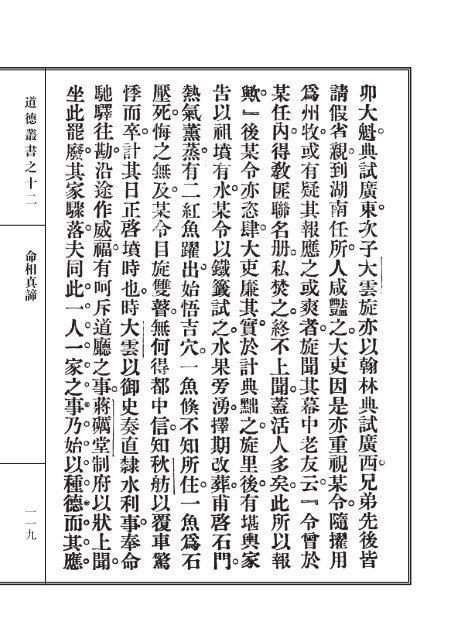 卯大魁典試廣東次子大雲旋亦以翰林典試廣西兄弟先後皆
請假省親到湖南任所人咸豔之大吏因是亦重視某令隨擢用
爲州牧或有疑其報應之或爽者旋聞其幕中老友云『令曾於
某任內得教匪聯名册私焚之終不上聞蓋活人多矣此所以報
歟』後某令亦恣肆大吏廉其實於計典黜之旋里後有堪輿家
告以祖墳有水某令以鐵籤試之水果旁湧擇期改葬甫啓石門
熱氣薰蒸有二紅魚躍出始悟吉穴一魚倐不知所住一魚爲石
壓死悔之無及某令目旋雙瞽無何得都中信知秋舫以覆車驚
悸而卒計其日正啓墳時也時大雲以御史奏直隸水利事奉命
馳驛往勘沿途作威福有呵斥道廳之事蔣礪堂制府以狀上聞
坐此罷廢其家驟落夫同此一人一家之事乃始以種德而其應
道德叢書之十二
命相真諦
一一九